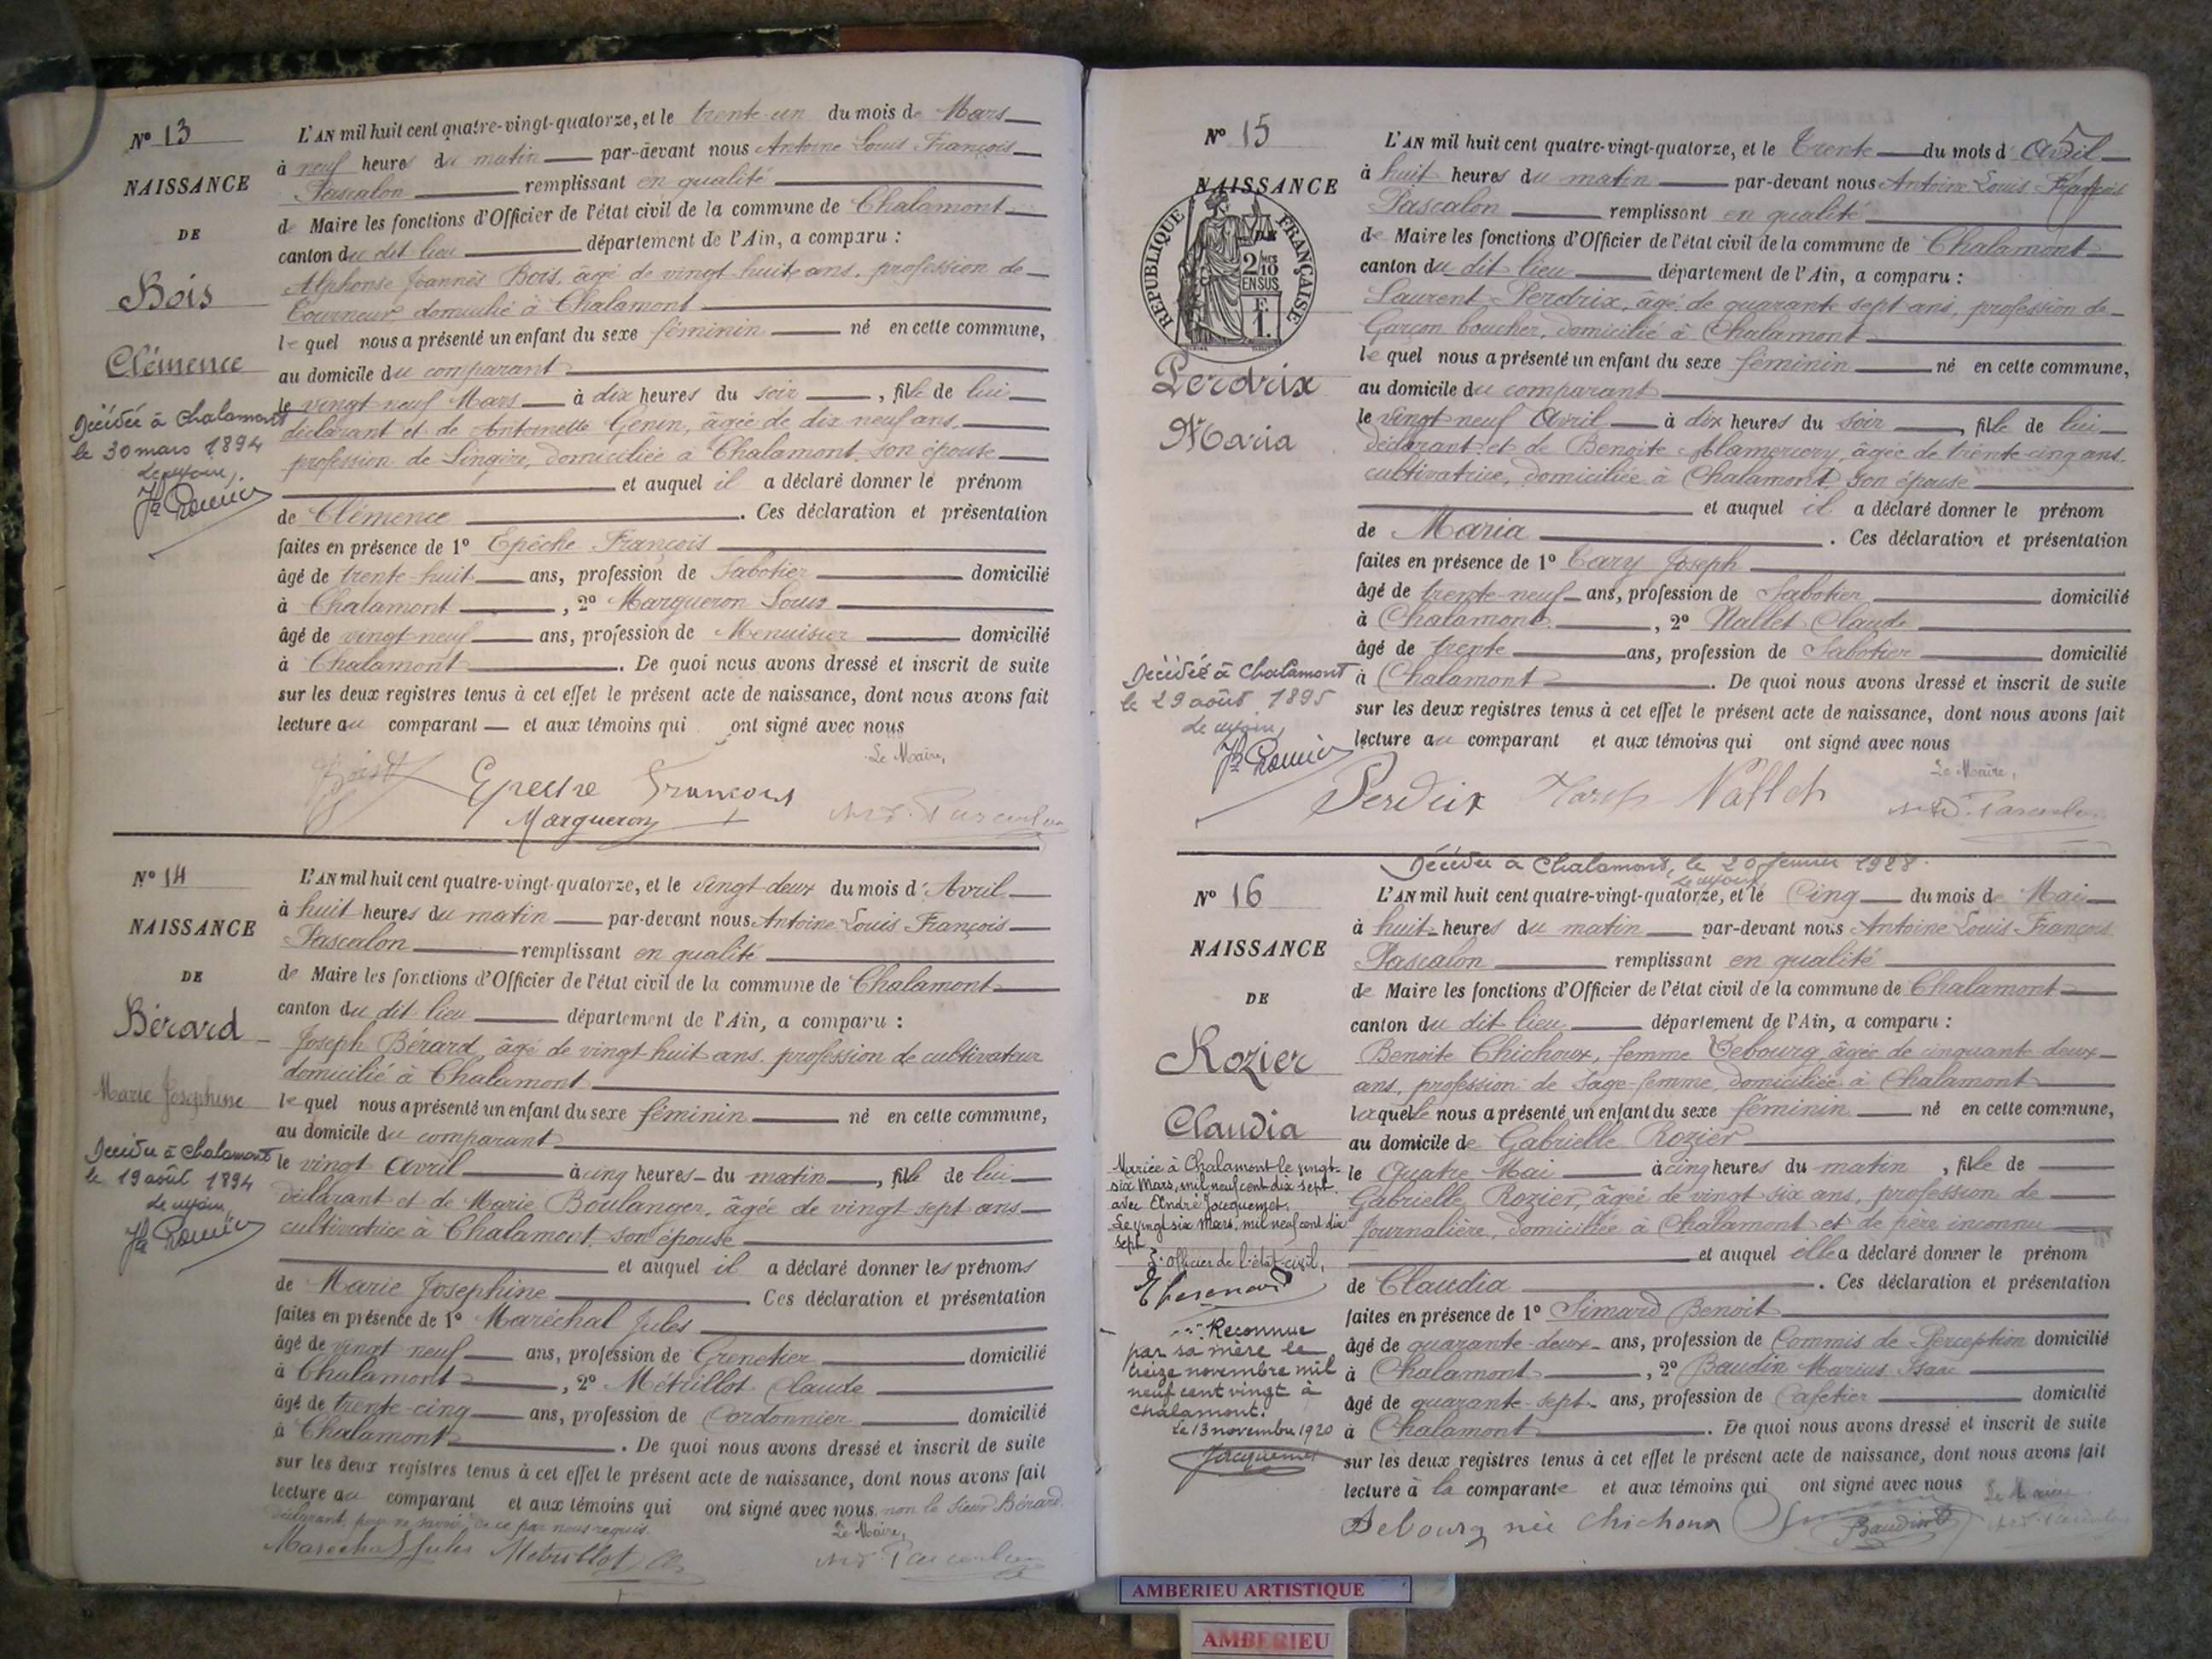 Nº 13
NAISSANCE
DE
Bois
Clémence
Décédée à Chalamont
le 30 mars 1894
L'AN mil huit cent quatre-vingt-quatorze, et le trente-un du mois de Mars
à neuf heures du matin par-devant nous Antoine Louis François
Pascalon remplissant en qualité
de Maire les fonctions d'Officier de l'état civil de la commune de Chalamont
canton du dit lieu département de l'Ain, a comparu :
Alphonse Joannès Bois, âgé de vingt huit ans, profession de
Tourneur, domicilié à Chalamont
lequel nous a présenté un enfant du sexe féminin né en cette commune,
au domicile du comparant
le vingt neuf Mars à dix heures du soir, fille de lui
déclarant et de Antoinette Genin, âgée de dix neuf ans,
profession de Lingère, domiciliée à Chalamont, son épouse
et auquel il a déclaré donner le prénom
de Clémence. Ces déclaration et présentation
faites en présence de 1º Epèche François
âgé de trente-huit ans, profession de Sabotier domicilié
à Chalamont, 2º Margueron Louis
âgé de vingt neuf ans, profession de Menuisier domicilié
à Chalamont. De quoi nous avons dressé et inscrit de suite
sur les deux registres tenus à cet effet le présent acte de naissance, dont nous avons fait
lecture au comparant et aux témoins qui ont signé avec nous
Le Maire,
François
Margueron
Nº 14
NAISSANCE
DE
Bérard
Marie Josephine
Décédée à Chalamont
le 19 août 1894
L'AN mil huit cent quatre-vingt-quatorze, et le vingt deux du mois d'Avril
à huit heures du matin par-devant nous Antoine Louis François
Pascalon remplissant en qualité
de Maire les fonctions d'Officier de l'état civil de la commune de Chalamont
canton du dit lieu département de l'Ain, a comparu :
Joseph Bérard, âgé de vingt huit ans, profession de cultivateur
domicilié à Chalamont
lequel nous a présenté un enfant du sexe féminin né en cette commune,
au domicile du comparant
le vingt Avril à cinq heures du matin, fille de lui
déclarant et de Marie Boulanger, âgée de vingt sept ans
cultivatrice à Chalamont, son épouse
et auquel il a déclaré donner les prénoms
de Marie Josephine. Ces déclaration et présentation
faites en présence de 1º Maréchal Jules
âgé de vingt neuf ans, profession de Grenetier domicilié
à Chalamont, 2º Métrillot Claude
âgé de trente-cinq ans, profession de Cordonnier domicilié
à Chalamont. De quoi nous avons dressé et inscrit de suite
sur les deux registres tenus à cet effet le présent acte de naissance, dont nous avons fait
lecture au comparant et aux témoins qui ont signé avec nous, non le sieur Bérard
déclarant, pour ne savoir de ce par nous requis.
Le Maire,
Maréchal Jules Metrillot Cl.
Nº 15
NAISSANCE
REPUBLIQUE FRANÇAISE
2/10 EN SUS
Perdrix
Maria
Décédée à Chalamont
le 29 août 1895
5
L'AN mil huit cent quatre-vingt-quatorze, et le Trente du mois d'Avril
à huit heures du matin par-devant nous Antoine Louis François
Pascalon remplissant en qualité
de Maire les fonctions d'Officier de l'état civil de la commune de Chalamont
canton du dit lieu département de l'Ain, a comparu :
Laurent Perdrix, âgé de quarante sept ans, profession de
Garçon boucher, domicilié à Chalamont
lequel nous a présenté un enfant du sexe féminin né en cette commune,
au domicile du comparant
le vingt neuf Avril à dix heures du soir, fille de lui
déclarant et de Benoite Alamercery, âgée de trente-cinq ans,
cultivatrice, domiciliée à Chalamont, son épouse
et auquel il a déclaré donner le prénom
de Maria. Ces déclaration et présentation
faites en présence de 1º Joseph
âgé de trente-neuf ans, profession de Sabotier domicilié
à Chalamont, 2º Nallet Claude
âgé de trente ans, profession de Sabotier domicilié
à Chalamont. De quoi nous avons dressé et inscrit de suite
sur les deux registres tenus à cet effet le présent acte de naissance, dont nous avons fait
lecture au comparant et aux témoins qui ont signé avec nous
Le Maire,
Perdrix Nallet
Décédée à Chalamont, le 20 février 1928.
Nº 16
NAISSANCE
DE
Rozier
Claudia
Mariée à Chalamont le vingt-
six Mars, mil neuf cent dix sept
avec André Jacquemet.
Le vingt six Mars, mil neuf cent dix
sept
L'officier de l'état-civil,
Reconnue
par sa mère le
treize novembre mil
neuf cent vingt à
Chalamont.
Le 13 novembre 1920
Jacquemet
L'AN mil huit cent quatre-vingt-quatorze, et le Cinq du mois de Mai
à huit heures du matin par-devant nous Antoine Louis François
Pascalon remplissant en qualité
de Maire les fonctions d'Officier de l'état civil de la commune de Chalamont
canton du dit lieu département de l'Ain, a comparu :
Benoite Chichoux, femme Debourg, âgée de cinquante deux
ans, profession de Sage-femme, domiciliée à Chalamont
laquelle nous a présenté un enfant du sexe féminin né en cette commune,
au domicile de Gabrielle Rozier
le Quatre Mai à cinq heures du matin, fille de
Gabrielle Rozier, âgée de vingt six ans, profession de
Journalière, domiciliée à Chalamont et de père inconnu
et auquel elle a déclaré donner le prénom
de Claudia. Ces déclaration et présentation
faites en présence de 1º Simard Benoit
âgé de quarante-deux ans, profession de Commis de Perception domicilié
à Chalamont, 2º Baudin Marius Isaac
âgé de quarante-sept ans, profession de Cafetier domicilié
à Chalamont. De quoi nous avons dressé et inscrit de suite
sur les deux registres tenus à cet effet le présent acte de naissance, dont nous avons fait
lecture à la comparante et aux témoins qui ont signé avec nous
Le Maire
Debourg née Chichoux Baudin
AMBERIEU ARTISTIQUE
AMBERIEU